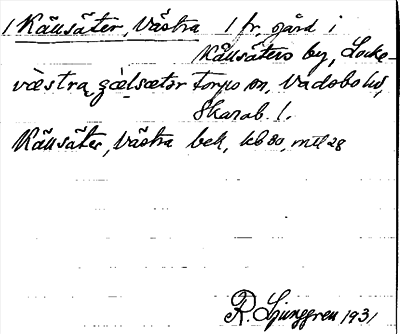 1 Källsäter, Västra 1 fr. gård i
Källsäters by, Locke-
væ̀stra gæ̀lsætər torps sn, Vadsbo hd,
Skarab. l.
Källsäter, Västra bek, kb 80, mtl 28
R. Ljunggren 1931